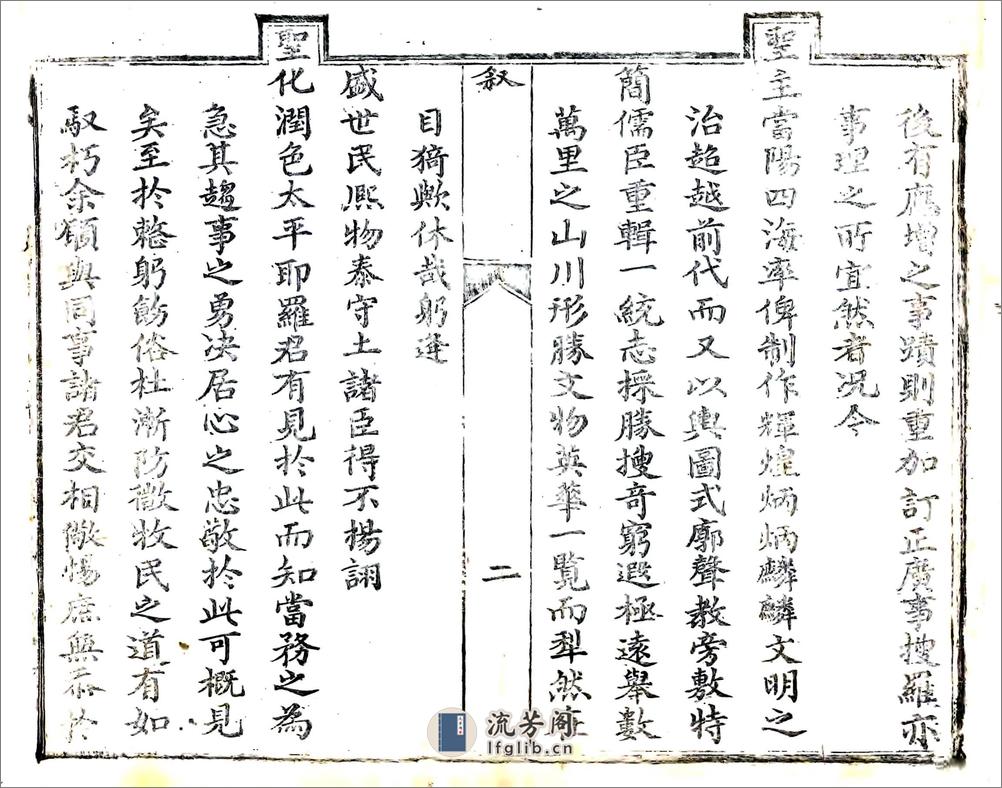 後有應增之事蹟則重加訂正廣事搜羅亦
事理之所宜然者况今
聖主當陽四海率俾制作輝煌炳炳麟麟文明之
治超越前代而又以輿圖式廓聲教旁敷特
簡儒臣重輯一統志採勝搜奇窮遐極遠舉數
萬里之山川形勝文物英華一覽而犁然在
叙
二
目猗歟休哉躬逢
盛世民熈物泰守土諸臣得不揚詡
聖化潤色太平耶羅君有見於此而知當務之為
急其趨事之勇决居心之忠敬於此可概見
矣至於整躬飭俗杜漸防微牧民之道有如
馭朽余願與同事諸君交相儆惕庶無忝於
流芳阁
lfglib.cn